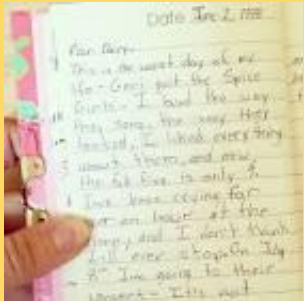 Date June 2, 1998
Dear Diary,
This is the worst day of my
life - Geri quit the Spice
Girls. I loved the way
they sang, the way they
looked, I liked everything
about them, and now
the fab five is only 4
I've been crying for
over an hour at the
and I don't think
I'll ever stop. On July
8th I'm going to their
concert - It's not